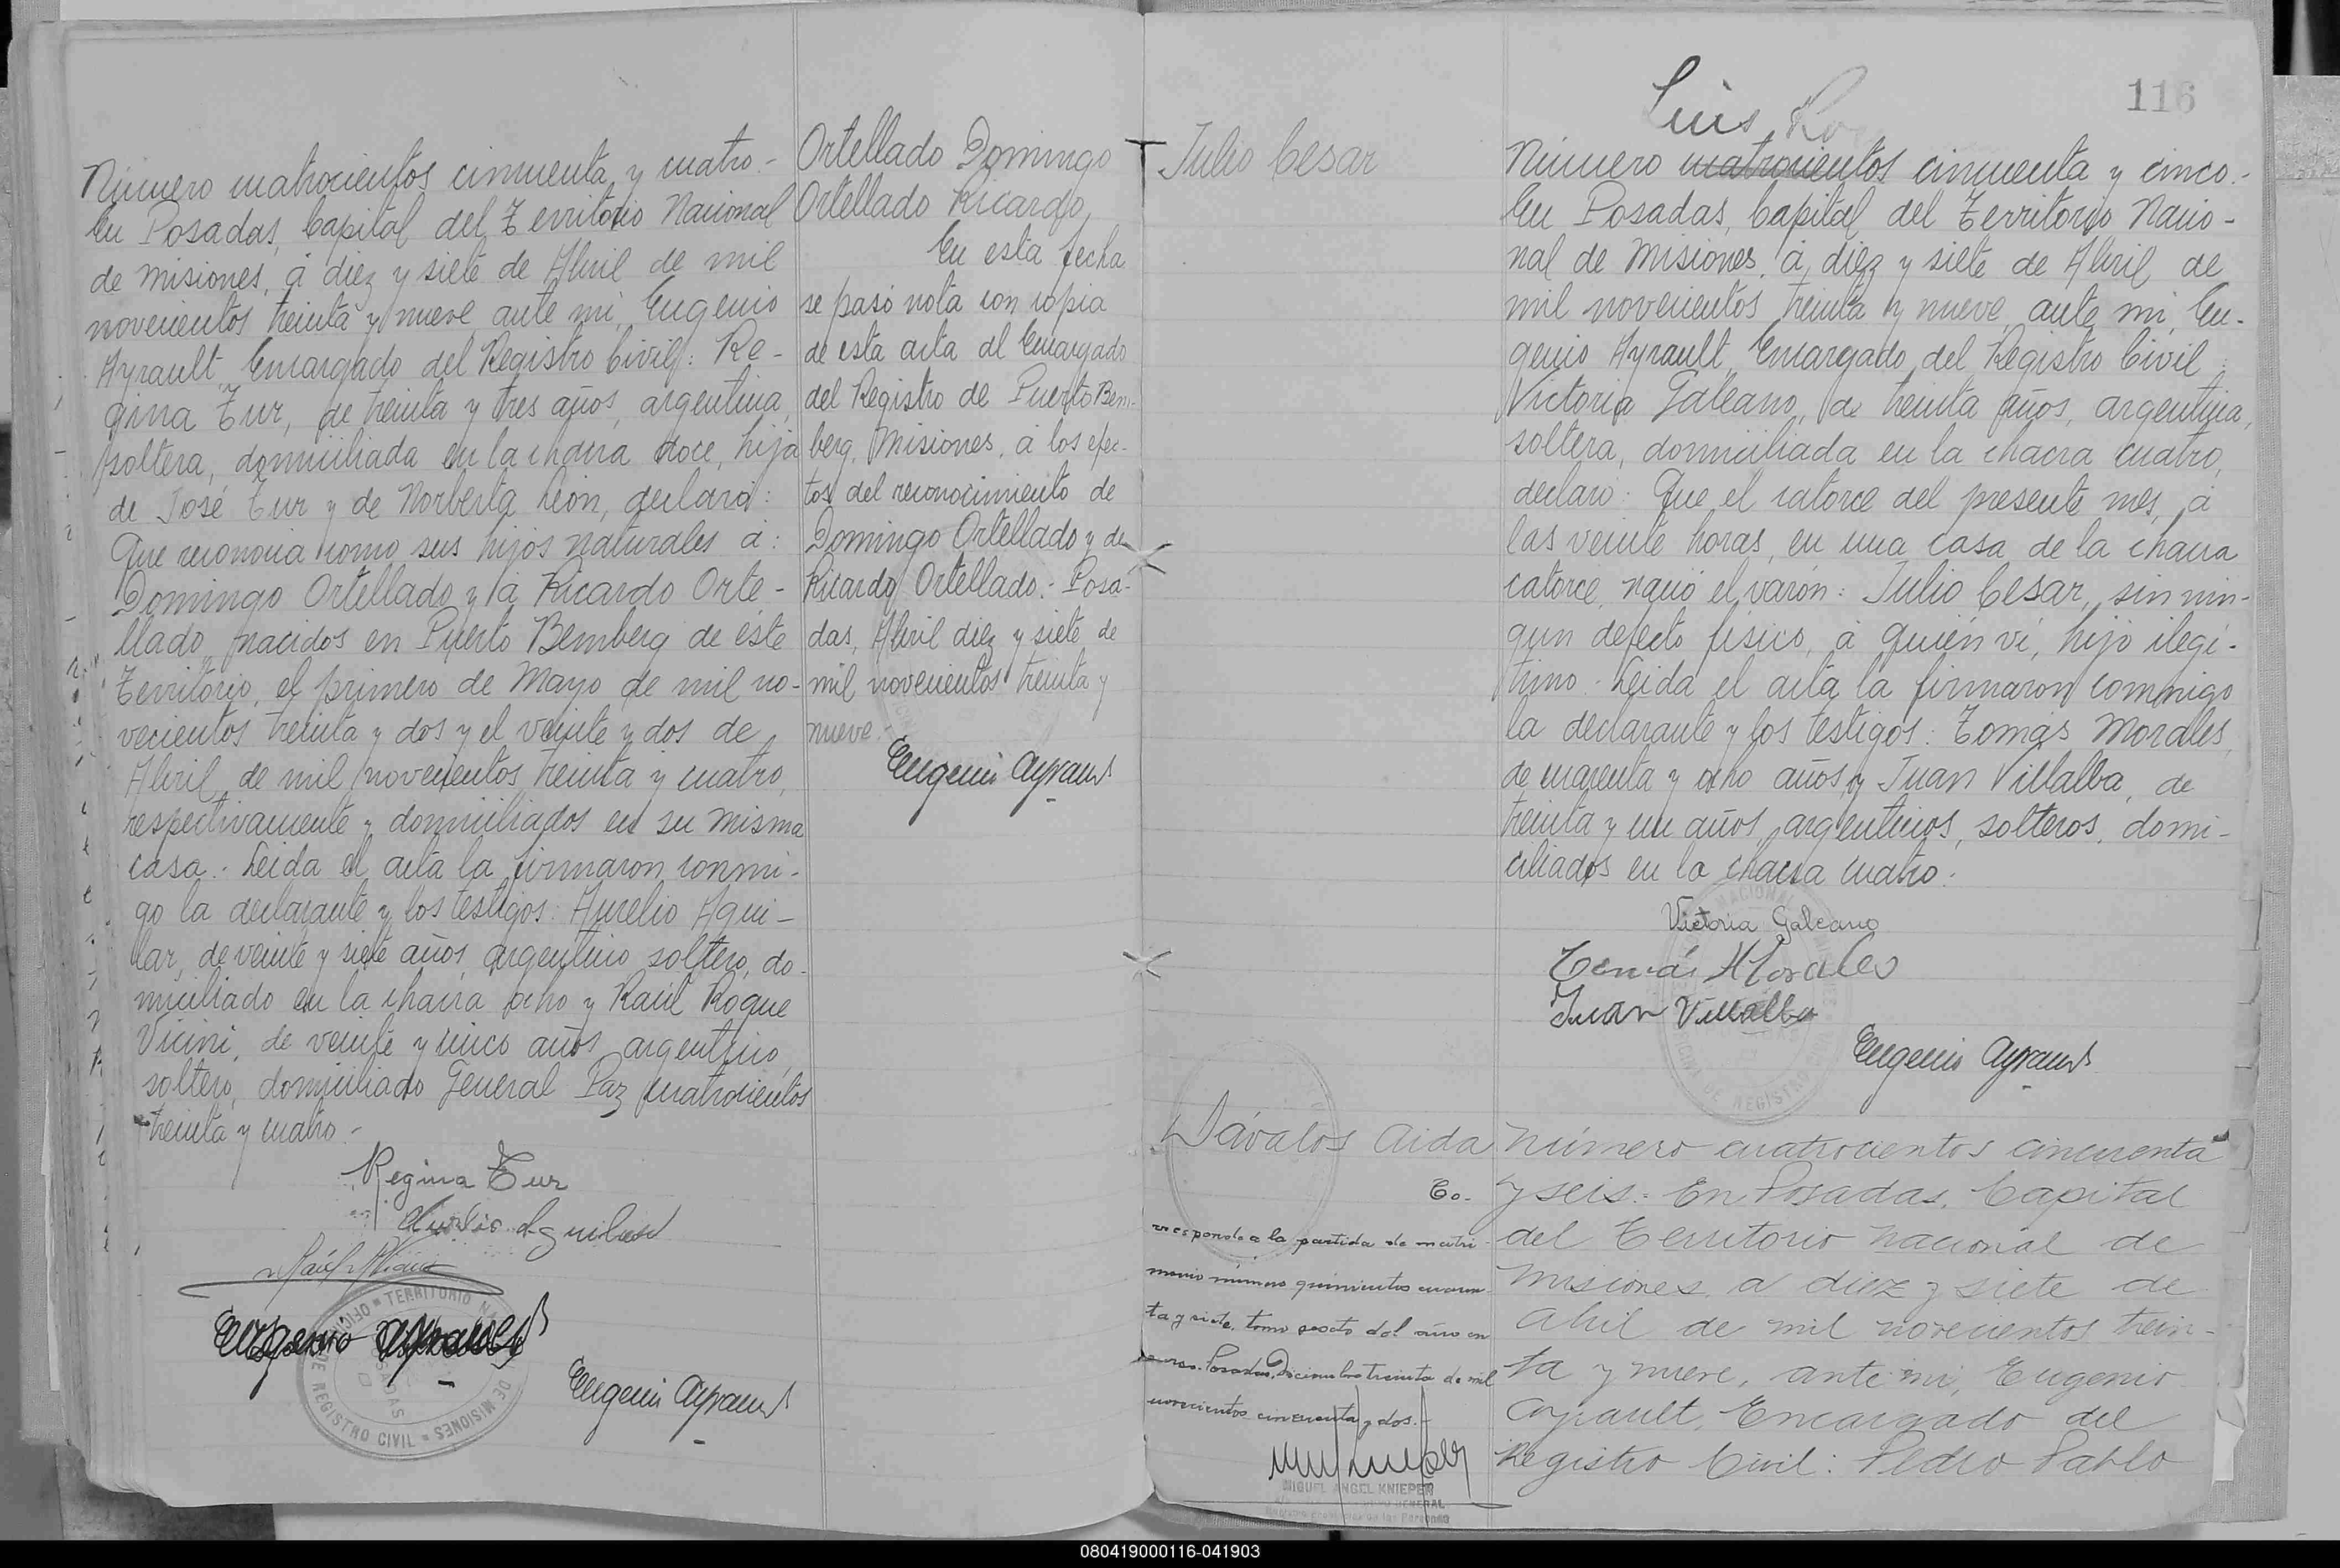 Número cuatrocientos cincuenta y cuatro.-
En Posadas, Capital del Territorio Nacional
de Misiones, á diez y siete de Abril de mil
novecientos treinta y nueve, ante mi, Eugenio
Ayrault, Encargado del Registro Civil: Re-
gina Tur, de treinta y tres años, argentina,
soltera, domiciliada en la chacra doce, hija
de José Tur y de Norberta León, declaró:
Que reconocia como sus hijos naturales á:
Domingo Ortellado y á Ricardo Orte-
llado, nacidos en Puerto Bemberg de éste
Territorio, el primero de Mayo de mil no-
vecientos treinta y dos y el veinte y dos de
Abril de mil novecientos treinta y cuatro,
respectivamente y domiciliados en su misma
casa.- Leida el acta la firmaron conmi-
go la declarante y los testigos: Aurelio Agui-
lar, de veinte y siete años, argentino, soltero, do-
miciliado en la chacra ocho y Raúl Roque
Vicini, de veinte y cinco años, argentino,
soltero, domiciliado General Paz cuatrocientos
treinta y cuatro.-
Regina Tur
Aurelio Aguilar
Eugenio Ayrault
Eugenio Ayrault
TERRITORIO NACIONAL DE MISIONES
OFICINA DE REGISTRO CIVIL
POSADAS
Ortellado Domingo
Ortellado Ricardo
En esta fecha
se pasó nota con copia
de esta acta al Encargado
del Registro de Puerto Bem-
berg, Misiones, á los efec-
tos del reconocimiento de
Domingo Ortellado y de
Ricardo Ortellado.- Posa-
das, Abril diez y siete de
mil novecientos treinta y
nueve.
Eugenio Ayrault
116
Luis Ro
Julio Cesar
Número cuatrocientos cincuenta y cinco.-
En Posadas, Capital del Territorio Nacio-
nal de Misiones, á diez y siete de Abril de
mil novecientos treinta y nueve, ante mi, Eu-
genio Ayrault, Encargado del Registro Civil:
Victoria Galeano, de treinta años, argentina,
soltera, domiciliada en la chacra cuatro,
declaró: Que el catorce del presente mes, á
las veinte horas, en una casa de la chacra
catorce, nació el varón: Julio Cesar, sin nin-
gun defecto físico, á quién ví, hijo ilegí-
timo.- Leida el acta la firmaron conmigo
la declarante y los testigos: Tomás Morales,
de cuarenta y ocho años y Juan Villalba, de
treinta y un años, argentinos, solteros, domi-
ciliados en la chacra cuatro.
Victoria Galeano
Tomás Morales
Juan Villalba
Eugenio Ayrault
Dávalos Aida
Co-
rresponde a la partida de matri-
monio número quinientos cuaren-
ta y siete, tomo sexto del año en
curso. Posadas, Diciembre treinta de mil
novecientos cincuenta y dos.-
MIGUEL ANGEL KNIEPER
Número cuatrocientos cincuenta
y seis.- En Posadas, Capital
del Territorio Nacional de
Misiones, a diez y siete de
Abril de mil novecientos trein-
ta y nueve, ante mi, Eugenio
Ayrault, Encargado del
Registro Civil: Pedro Pablo
080419000116-041903